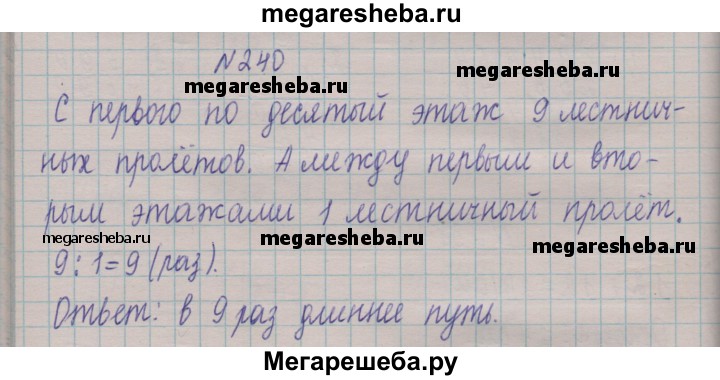 megaresheba.ru
N240
megaresheba.ru megaresheba.ru
С первого по десятый этаж 9 лестнич-
ных пролётов. А между первым и вто-
рым этажами 1 лестничный пролёт.
megaresheba.ru megaresheba.ru megaresheba.ru
9:1=9 (раз).
Ответ: в 9 раз длиннее путь.
Мегарешеба.ру